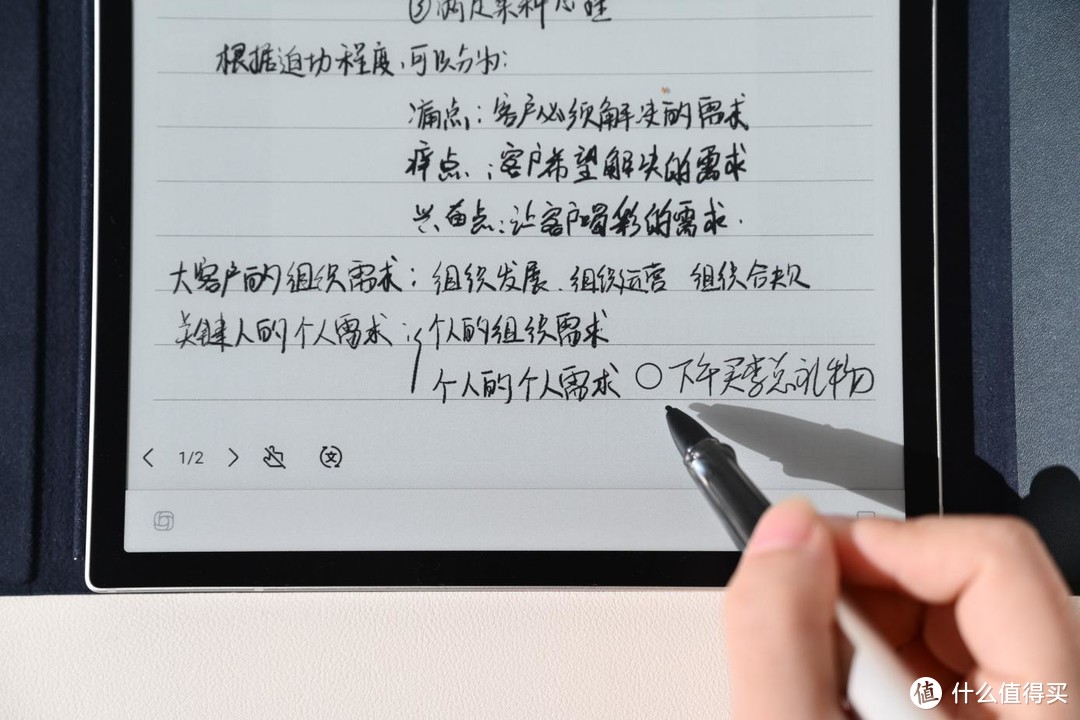 ③满足某种心理
根据迫切程度,可以分为:
痛点:客户必须解决的需求
痒点:客户希望解决的需求
兴奋点:让客户喝彩的需求.
大客户的组织需求:组织发展、组织运营 组织合规
关键人的个人需求:个人的组织需求
个人的个人需求 ○下午买李总礼物
1/2
文
值 什么值得买